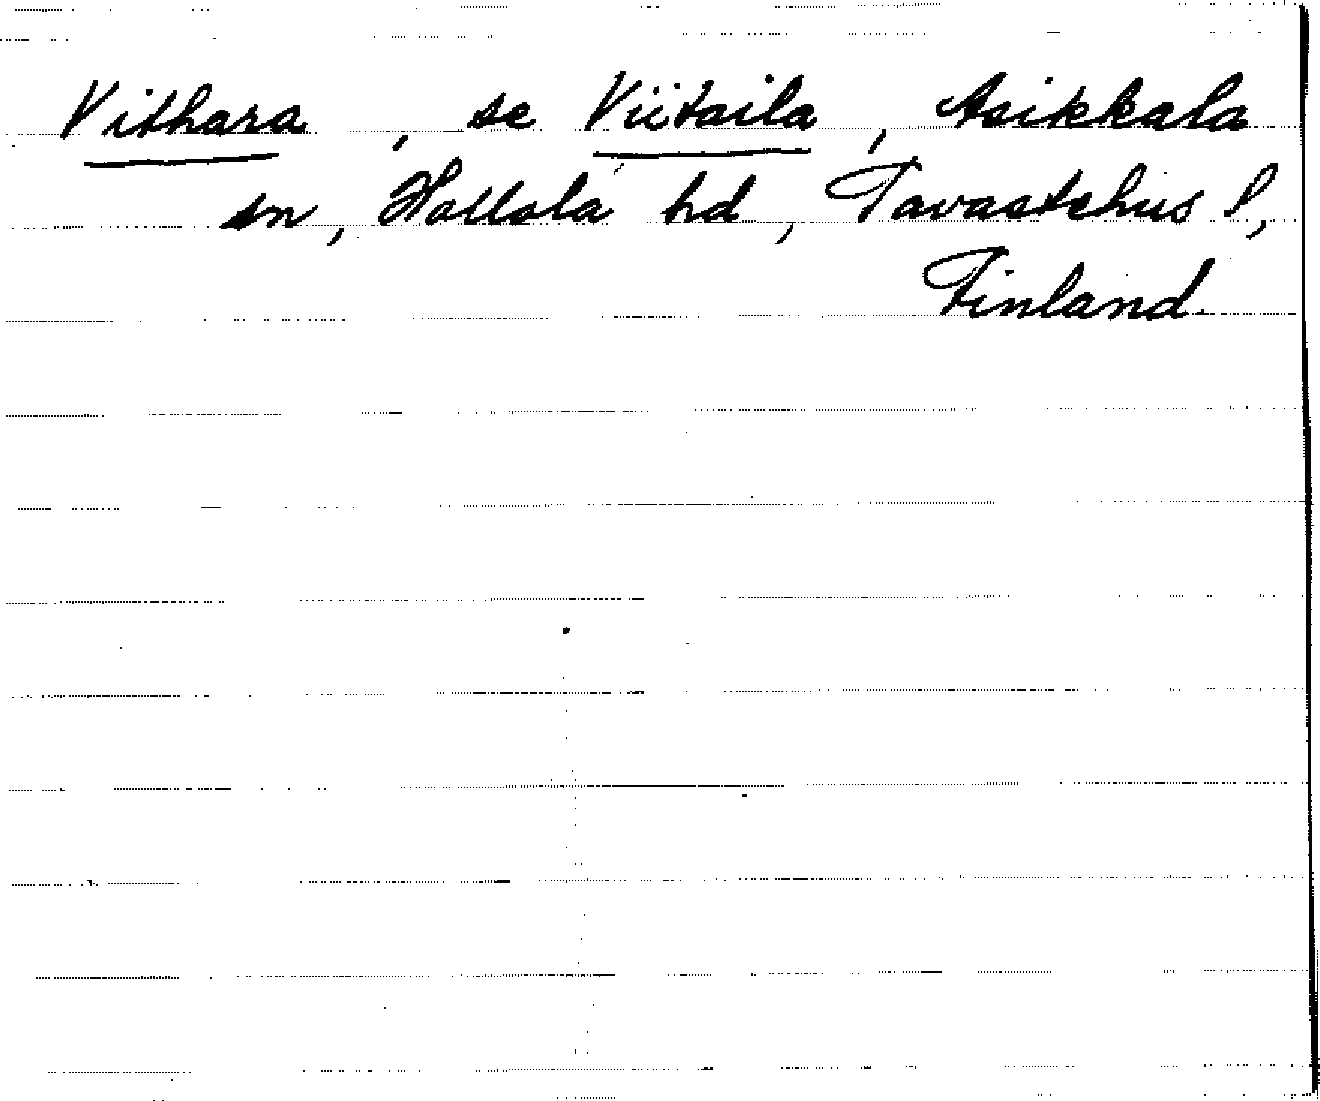 Vithara, se Viitaila, Asikkala
sn, Hollola hd, Tavastehus l,
Finland.